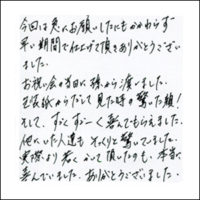 今回は急にお願いしたにもかかわらず
早い期間で仕上げて頂きありがとうござい
ました。
お祝い会の当日に孫から渡しました。
包装紙からだして見た時の驚いた顔!
そして、すごくすごーく喜んでもらえました。
他にいた人達も そっくりと驚いてました。
実際より若くかいて頂いたのも、本当に
喜んでいました。ありがとうございました。